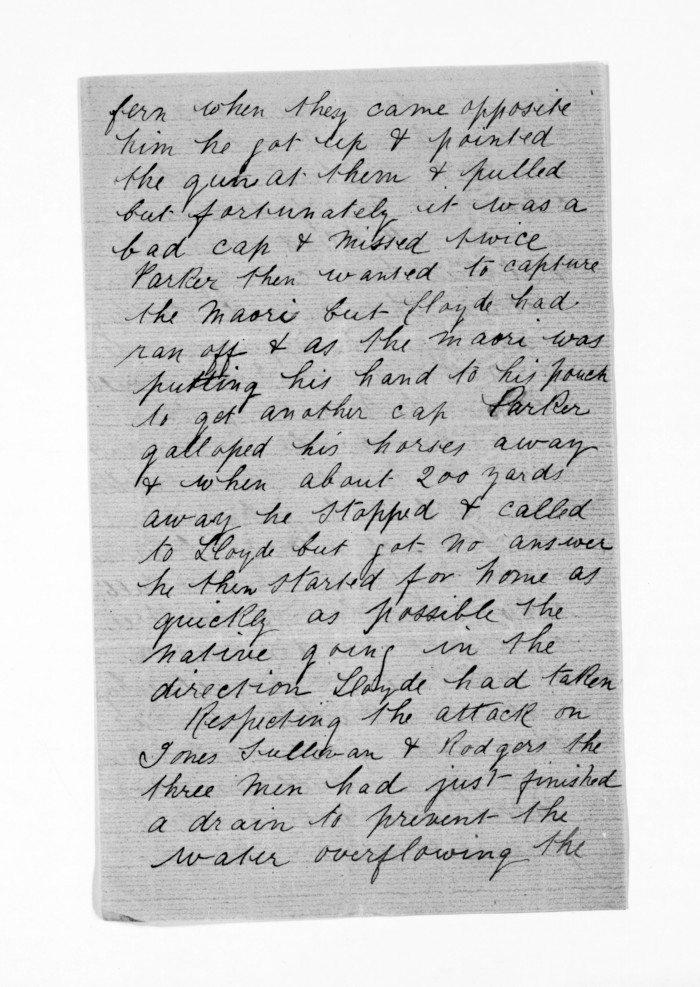 fern when they came opposite
him he got up & pointed
the gun at them & pulled
but fortunately it was a
bad cap & missed twice
Parker then wanted to capture
the Maori but Lloyde had
ran off & as the maori was
putting his hand to his pouch
to get another cap Parker
galloped his horses away
& when about 200 yards
away he stopped & called
to Lloyde but got no answer
he then started for home as
quickly as possible the
native going in the
direction Lloyde had taken
Respecting the attack on
Jones Sullivan & Rodgers the
three men had just finished
a drain to prevent the
water overflowing the